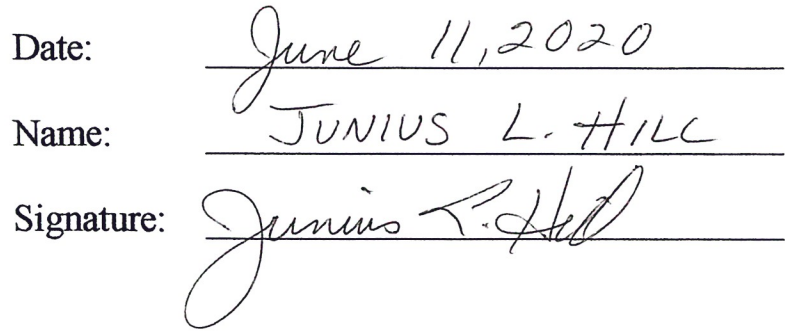 Date: June 11, 2020
Name: JUNIUS L. HILL
Signature: Junius L. Hill